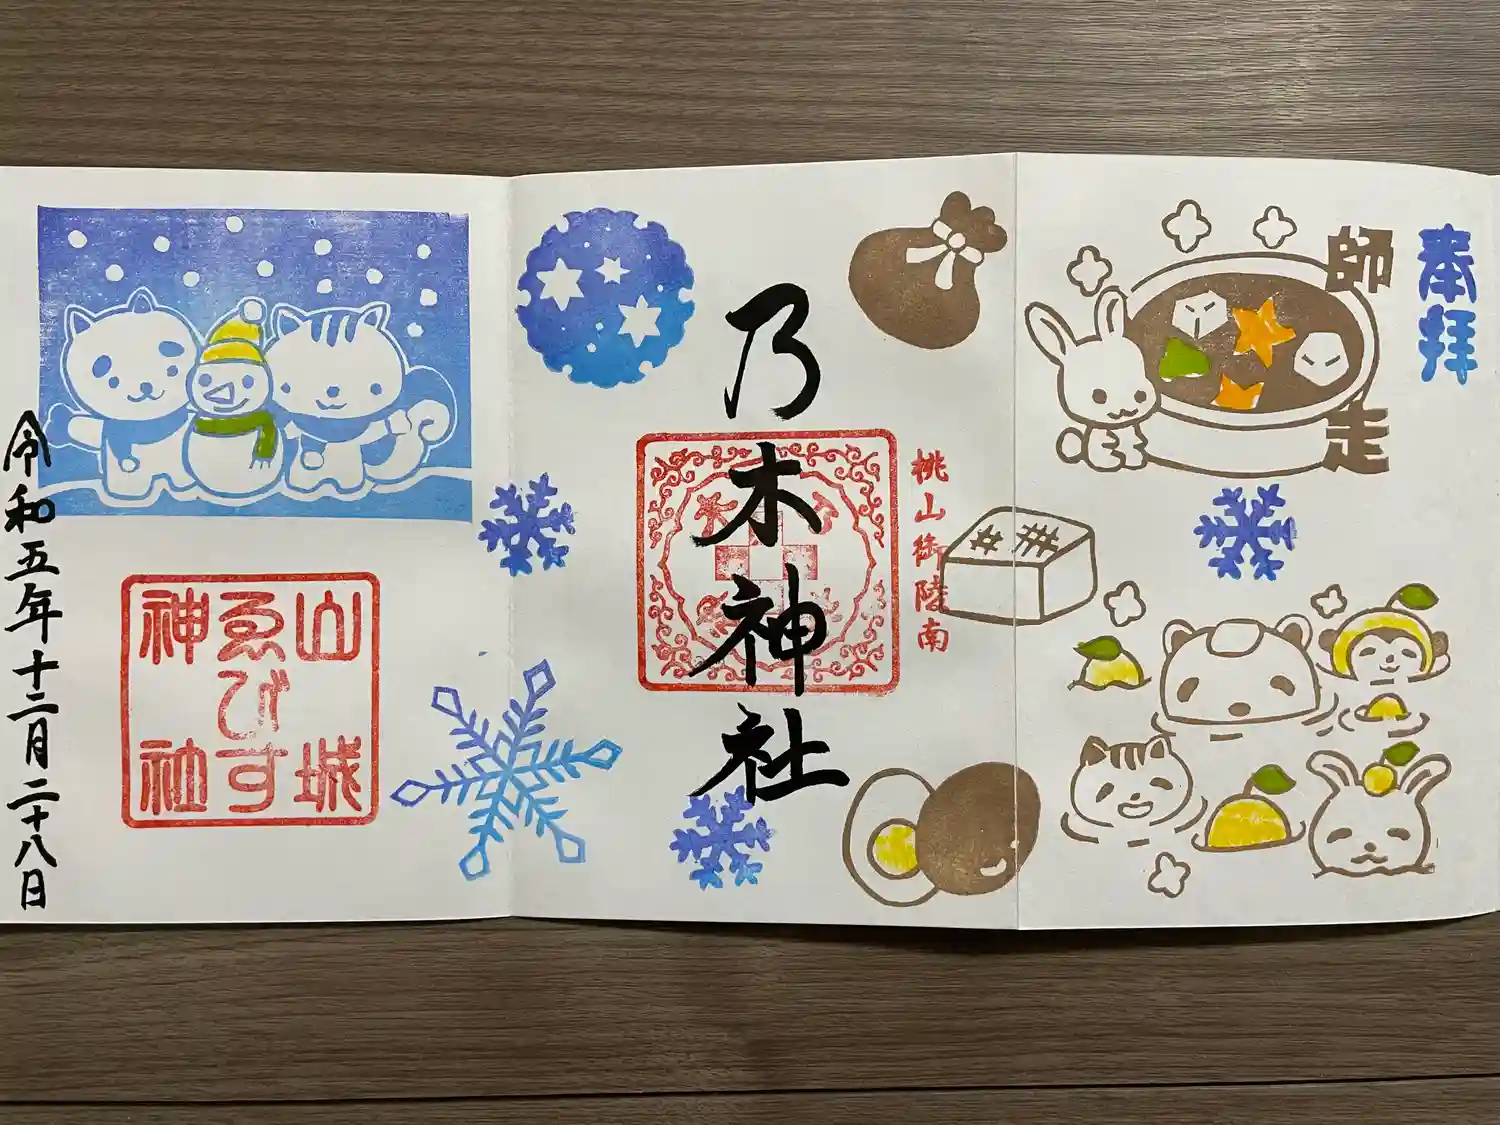 奉拝
師走
桃山御陵南
乃木神社
山城
ゑびす
神社
令和五年十二月二十八日